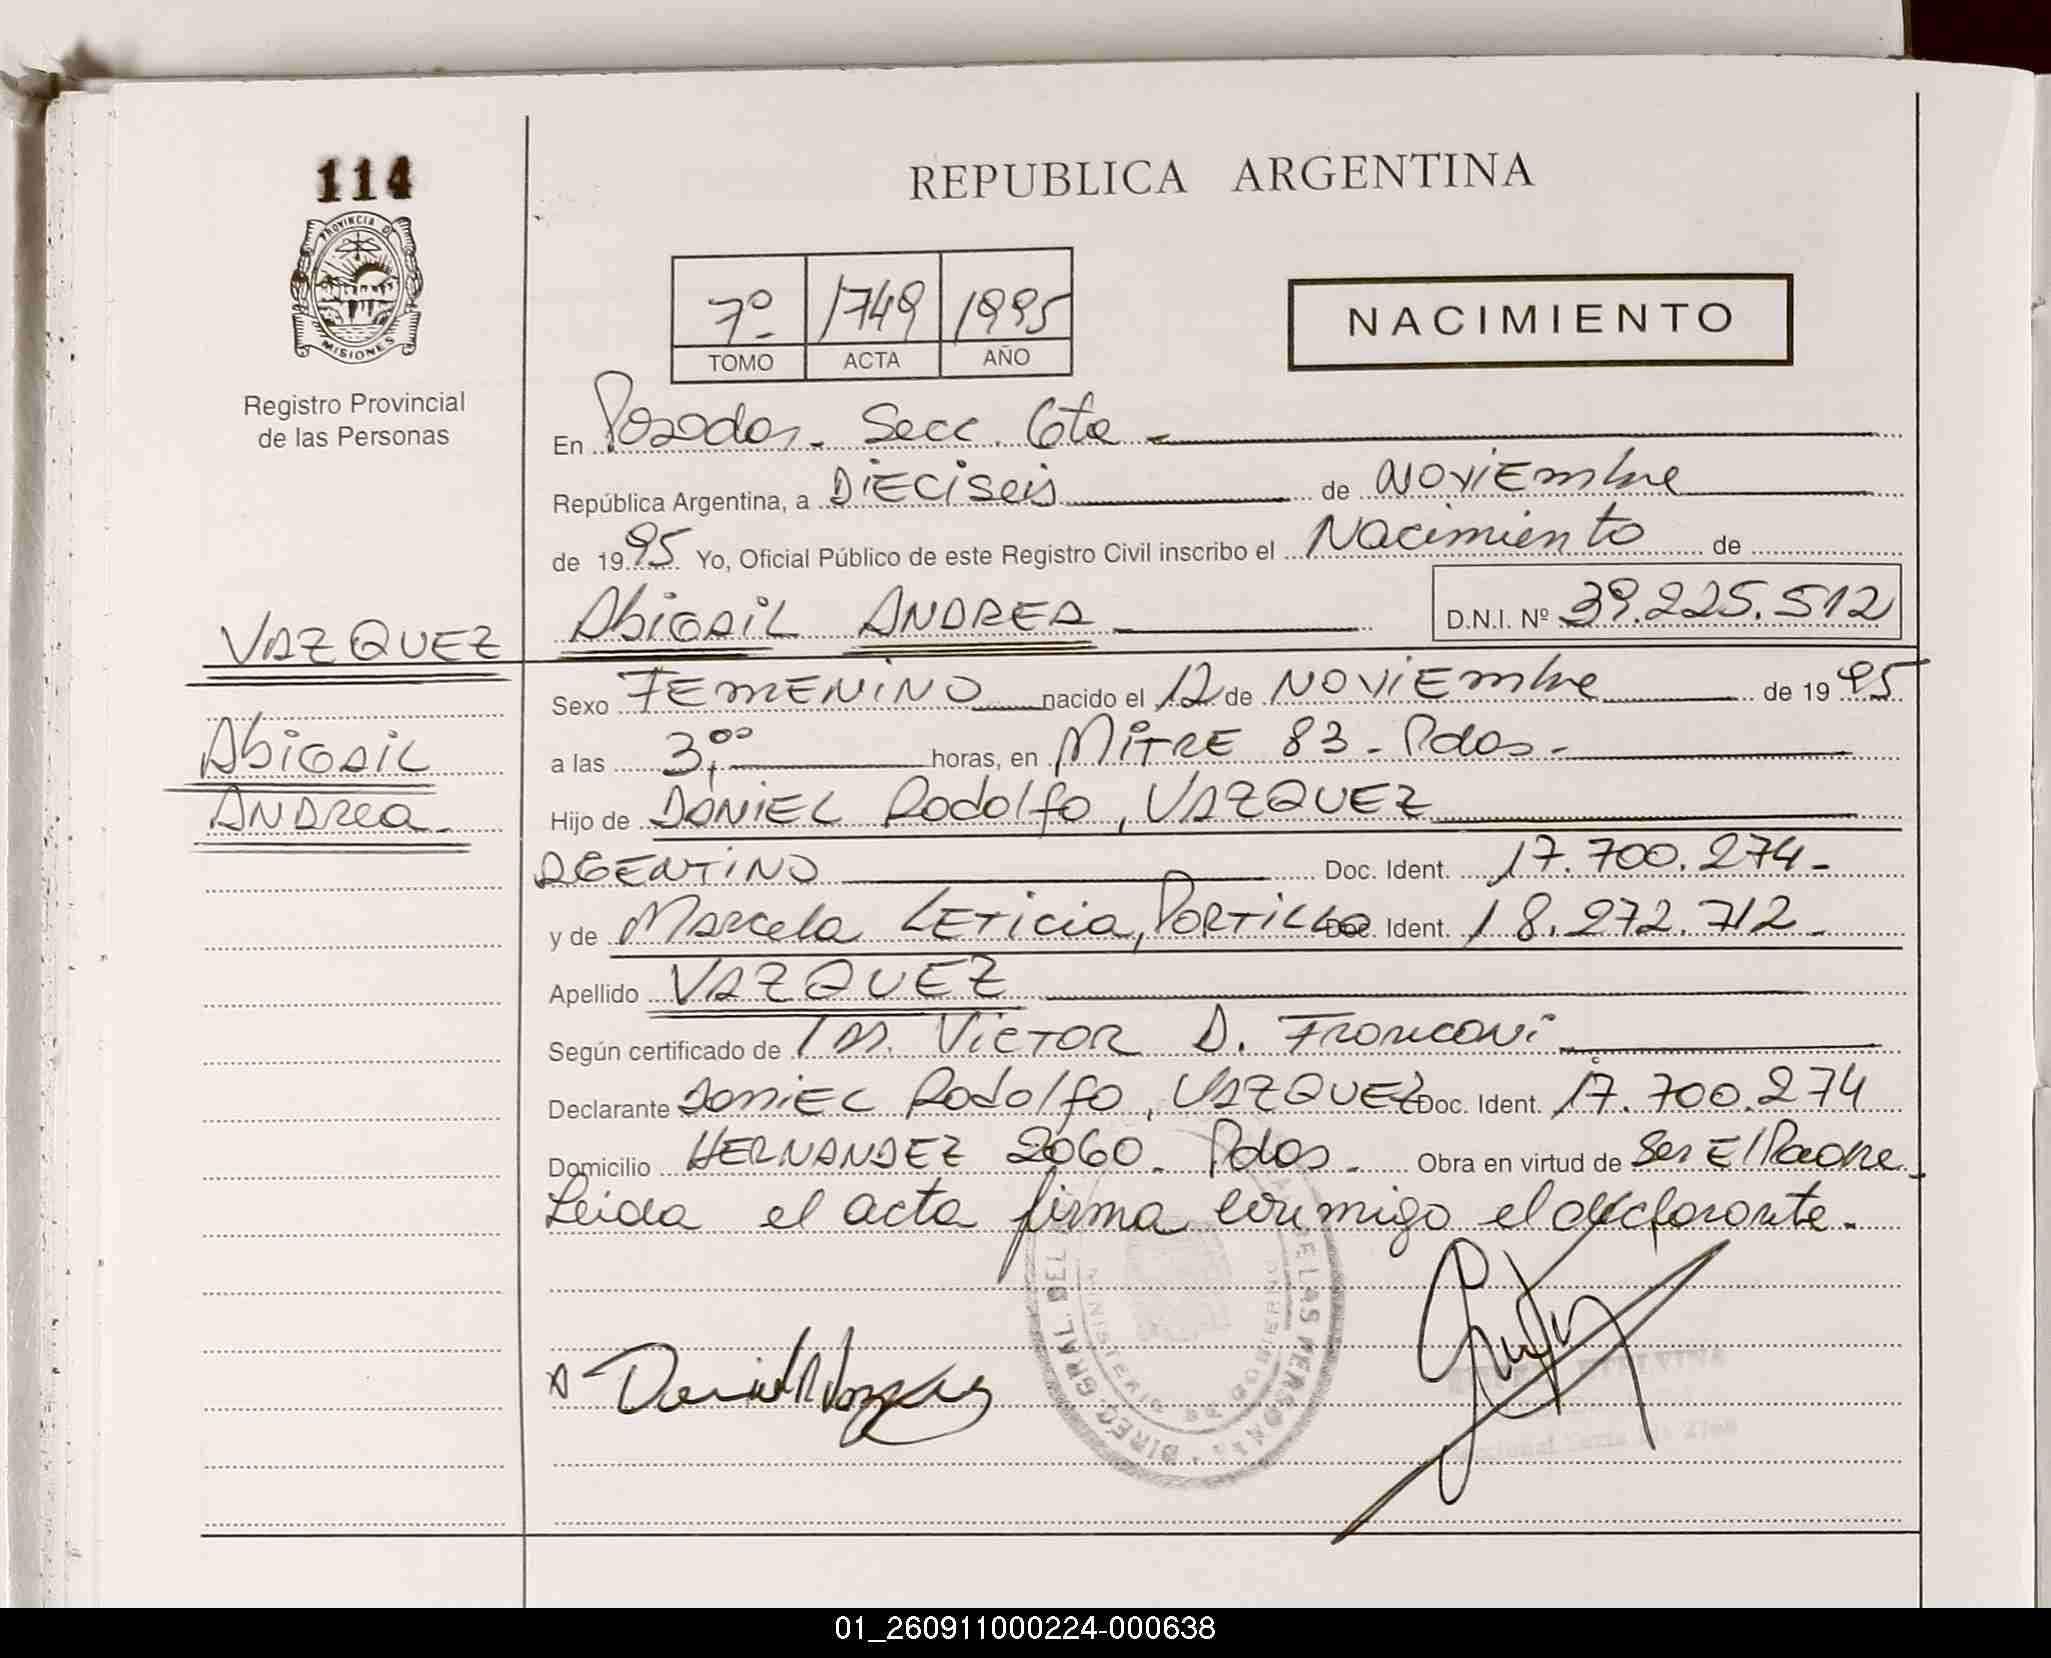 114
PROVINCIA D
MISIONES
Registro Provincial
de las Personas
REPUBLICA ARGENTINA
7º 1749 1995
TOMO ACTA AÑO
NACIMIENTO
En Posadas. Secc. 6ta
República Argentina, a DiECiSeis de NOViEmbre
de 1995 Yo, Oficial Público de este Registro Civil inscribo el Nacimiento de
VAZQUEZ
AbiGAiL ANDREA D.N.I. Nº 39.225.512
Sexo FEmENiNO nacido el 12 de NOViEmbre de 1995
AbiGAiL
a las 3,00 horas, en MiTRE 83 - Pdas -
ANDRea.
Hijo de DANiEL Rodolfo, VAZQUEZ
AGENTiNO Doc. Ident. 17.700.274-
y de Marcela LETicia, PORTiLLO Doc. Ident. 18.272.712-
Apellido VAZQUEZ
Según certificado de VicTOR D. Franconi
Declarante DaniEL Rodolfo, VAZQUEZ Doc. Ident. 17.700.274
Domicilio HERNANDEZ 2060. Pdas. Obra en virtud de Ser El Padre
Leida el acta firma conmigo el declarante.
DIREC. GRAL. DEL DE LAS PERSONAS
MINISTERIO DE GOBIERNO
01_260911000224-000638